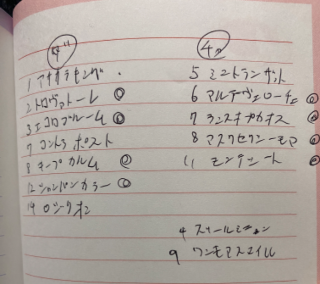 ダ
1 アイオラセレング
2 トロヴァトーレ ◎
3 エコロブルーム ◎
7 コントラポスト
8 チープカルム ◎
12 シャンパンカラー ◎
14 ロングオン
チカ
5 ミニトランザット
6 マルチヴェローチェ ◎
7 ランスオブカオス ◎
8 マスクセクシーモア ◎
11 モンテシート ◎
4 スリールミニョン
9 ワンモアスマイル